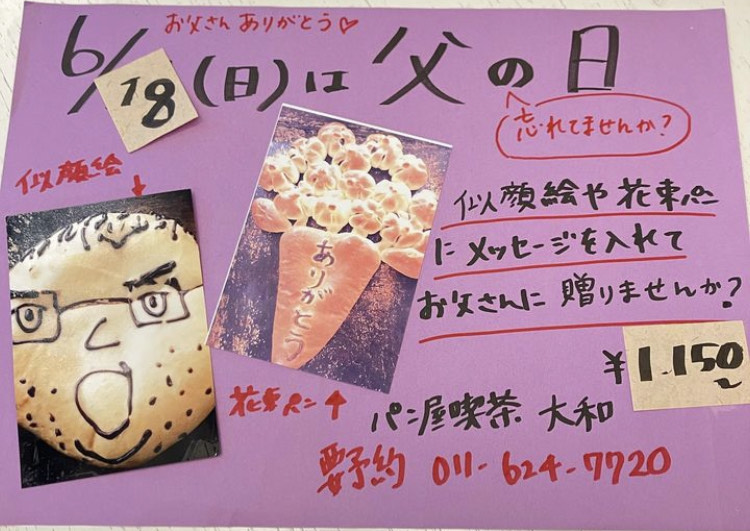 お父さん ありがとう♡
6/18(日)は 父の日
忘れてませんか?
似顔絵
ありがとう
似顔絵や花束パン
にメッセージを入れて
お父さんに贈りませんか?
¥1.150〜
花束パン↑
パン屋喫茶 大和
要予約 011-624-7720